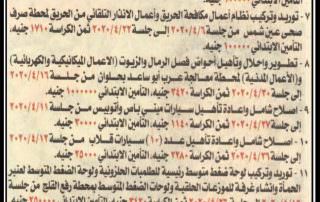 ٧ - توريد وتركيب نظام أعمال مكافحة الحريق وأعمال الانذار التلقائي من الحريق لمحطة صرف
صحى عين شمس من جلسة ٢٠٢٠/٤/٦ إلى جلسة ٢٠٢٠/٤/٢٢ ثمن الكراسة ١٧١٠ جنيه.
التأمين الابتدائي ١٠٠٠٠٠ جنيه.
٨ - تطوير واحلال وتأهيل أحواض فصل الرمال والزيوت (الاعمال الميكانيكية والكهربائية)
و(الأعمال المدنية) لمحطة معالجة عرب أبو ساعد بحلوان من جلسة ٢٠٢٠/٤/١٦
إلى جلسة ٢٠٢٠/٤/٣٠ ثمن الكراسة جنيه التأمين الابتدائي جنيه.
٩ - اصلاح شامل وإعادة تأهيل سيارات مينى باص وأتوبيس من جلسة
إلى جلسة ثمن الكراسة ١٤٢٠ جنيه التأمين الابتدائي ١٠٠٠٠ جنيه.
١٠ - اصلاح شامل وإعادة تأهيل عدد (١٠) سيارات قلاب من جلسة ٢٠٢٠/٤/١٢
إلى جلسة ثمن الكراسة جنيه التأمين الابتدائي ٢٥٠٠٠ جنيه.
١١ - توريد وتركيب لوحة ضغط متوسط رئيسية للطلمبات الحلزونية ولوحة الضغط المتوسط لعنبر
الحمأة وانشاء غرفة للموزعات الحلقية ولوحات الضغط المتوسط بمحطة رفع القلج من جلسة